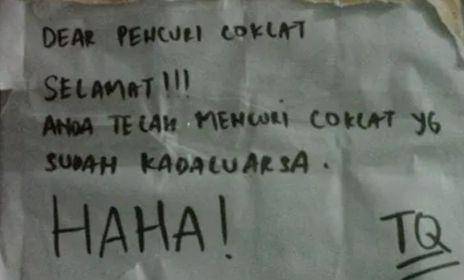 DEAR PENCURI COKLAT
SELAMAT!!!
ANDA TELAH MENCURI COKLAT YG
SUDAH KADALUARSA.
HAHA!
TQ